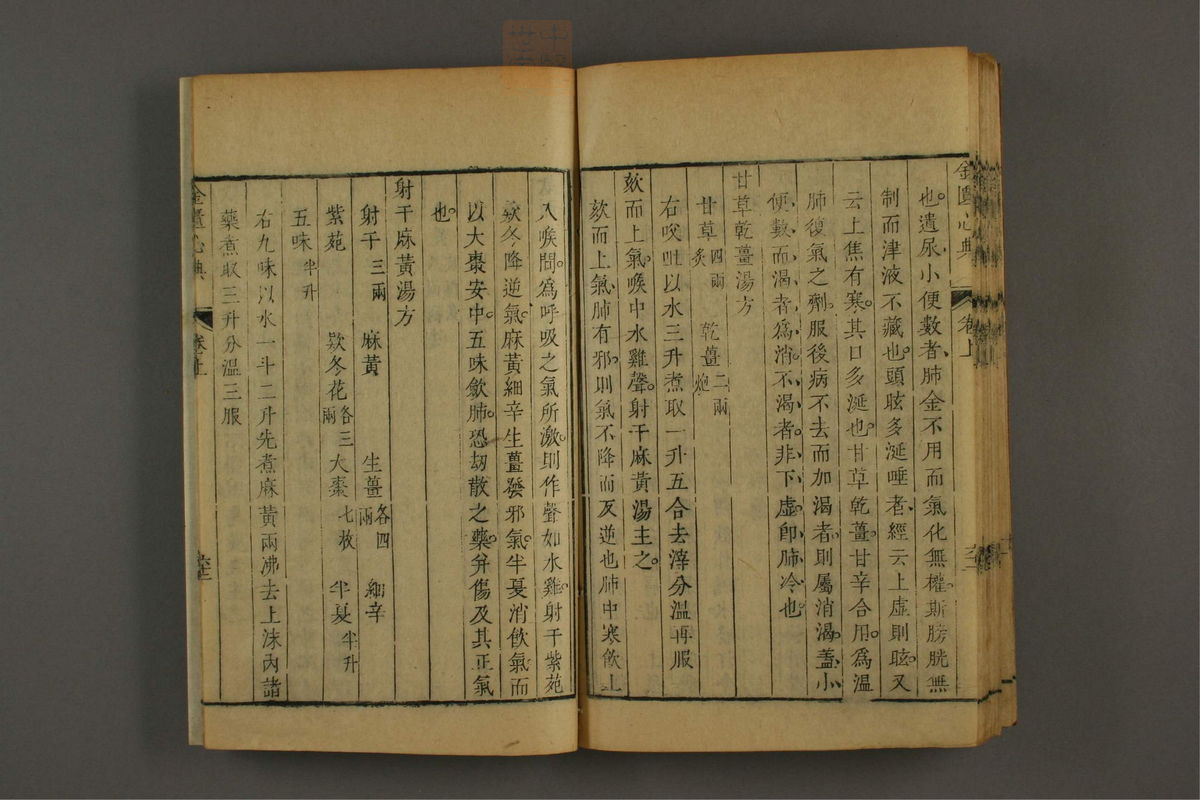 金匱心典
卷上
也遺尿小便數者肺金不用而氣化無權斯膀胱無
制而津液不藏也頭眩多涎唾者經云上虛則眩又
云上焦有寒其口多涎也甘草乾薑甘辛合用爲溫
肺復氣之劑服後病不去而加渴者則屬消渴蓋小
便數而渴者爲消不渴者非下虛卽肺冷也
甘草乾薑湯方
甘草四兩炙 乾薑二兩炮
右㕮咀以水三升煮取一升五合去滓分溫再服
欬而上氣喉中水雞聲射干麻黃湯主之
欬而上氣肺有邪則氣不降而反逆也肺中寒飮上
入喉間爲呼吸之氣所激則作聲如水雞射干紫菀
欵冬降逆氣麻黃細辛生薑發邪氣半夏消飮氣而
以大棗安中五味歛肺恐刼散之藥幷傷及其正氣
也
射干麻黃湯方
射干三兩 麻黃 生薑各四兩 細辛
紫菀 欵冬花各三兩 大棗七枚 半夏半升
五味半升
右九味以水一斗二升先煮麻黃兩沸去上沫內諸
藥煮取三升分溫三服
金匱心典
卷上